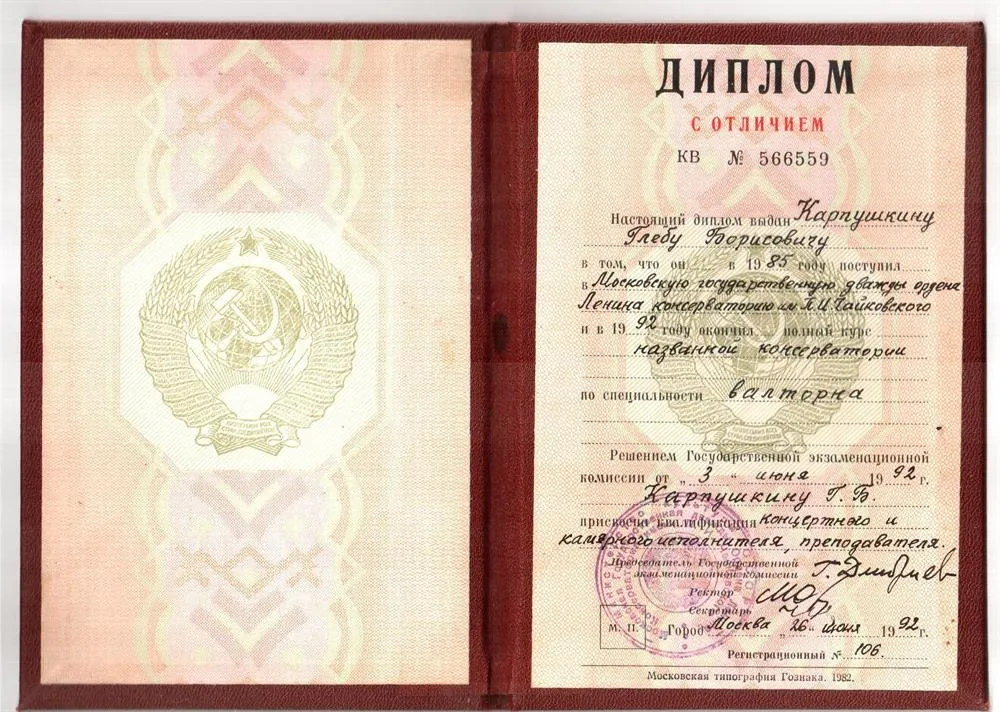 ДИПЛОМ
С ОТЛИЧИЕМ
КВ № 566559
Настоящий диплом выдан Карпушкину
Глебу Борисовичу
в том, что он в 1985 году поступил
в Московскую государственную дважды ордена
Ленина консерваторию им П.И.Чайковского
и в 1992 году окончил полный курс
названной консерватории
по специальности валторна
Решением Государственной экзаменационной
комиссии от „3“ июня 1992 г.
Карпушкину Г. Б.
присвоена квалификация концертного и
камерного исполнителя, преподавателя.
Председатель Государственной
экзаменационной комиссии
Ректор
Секретарь
М. П. Город Москва „26“ июня 1992 г.
Регистрационный № 106.
Московская типография Гознака. 1982.